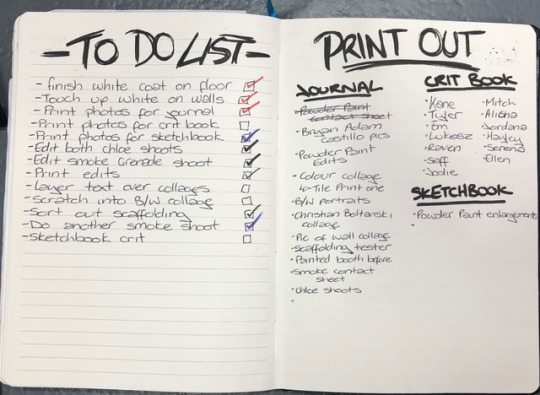 -TO DO LIST-
- finish white coat on floor
- Touch up white on walls
- Print photos for journel
- Print photos for crit book
- Print photos for sketchbook
- Edit both chloe shoots
- Edit smoke grenade shoot
- Print edits
- Layer text over collages
- scratch into B/W collage
- Sort out scaffolding
- Do another smoke shoot
- Sketchbook crit
PRINT OUT
JOURNAL
· Powder Paint
contact sheet
· Bryan Adam
castillo pics
· Powder Paint
Edits
· Colour collage
4-Tile Print one
· B/W portraits
· Christian Boltanski
collage
· Pic of wall collage
· scaffolding tester
· Painted booth before
· Smoke contact
sheet
· Chloe shoots
·
CRIT BOOK
· Kane
· Tyler
· Em
· Lukasz
· Raven
· Saff
· Jodie
· Mitch
· Alisha
· Jordana
· Hayley
· Serena
· Ellen
SKETCHBOOK
· Powder Paint enlargements
·